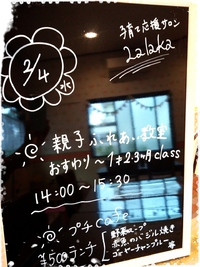 子育て応援サロン
Lalaka
2/4
水
親子ふれあい教室
おすわり〜1才2.3ヶ月class
14:00〜15:30
プチCafe
¥500ランチ
野菜スープ
バジル焼き
ゴーヤーチャンプルー 等